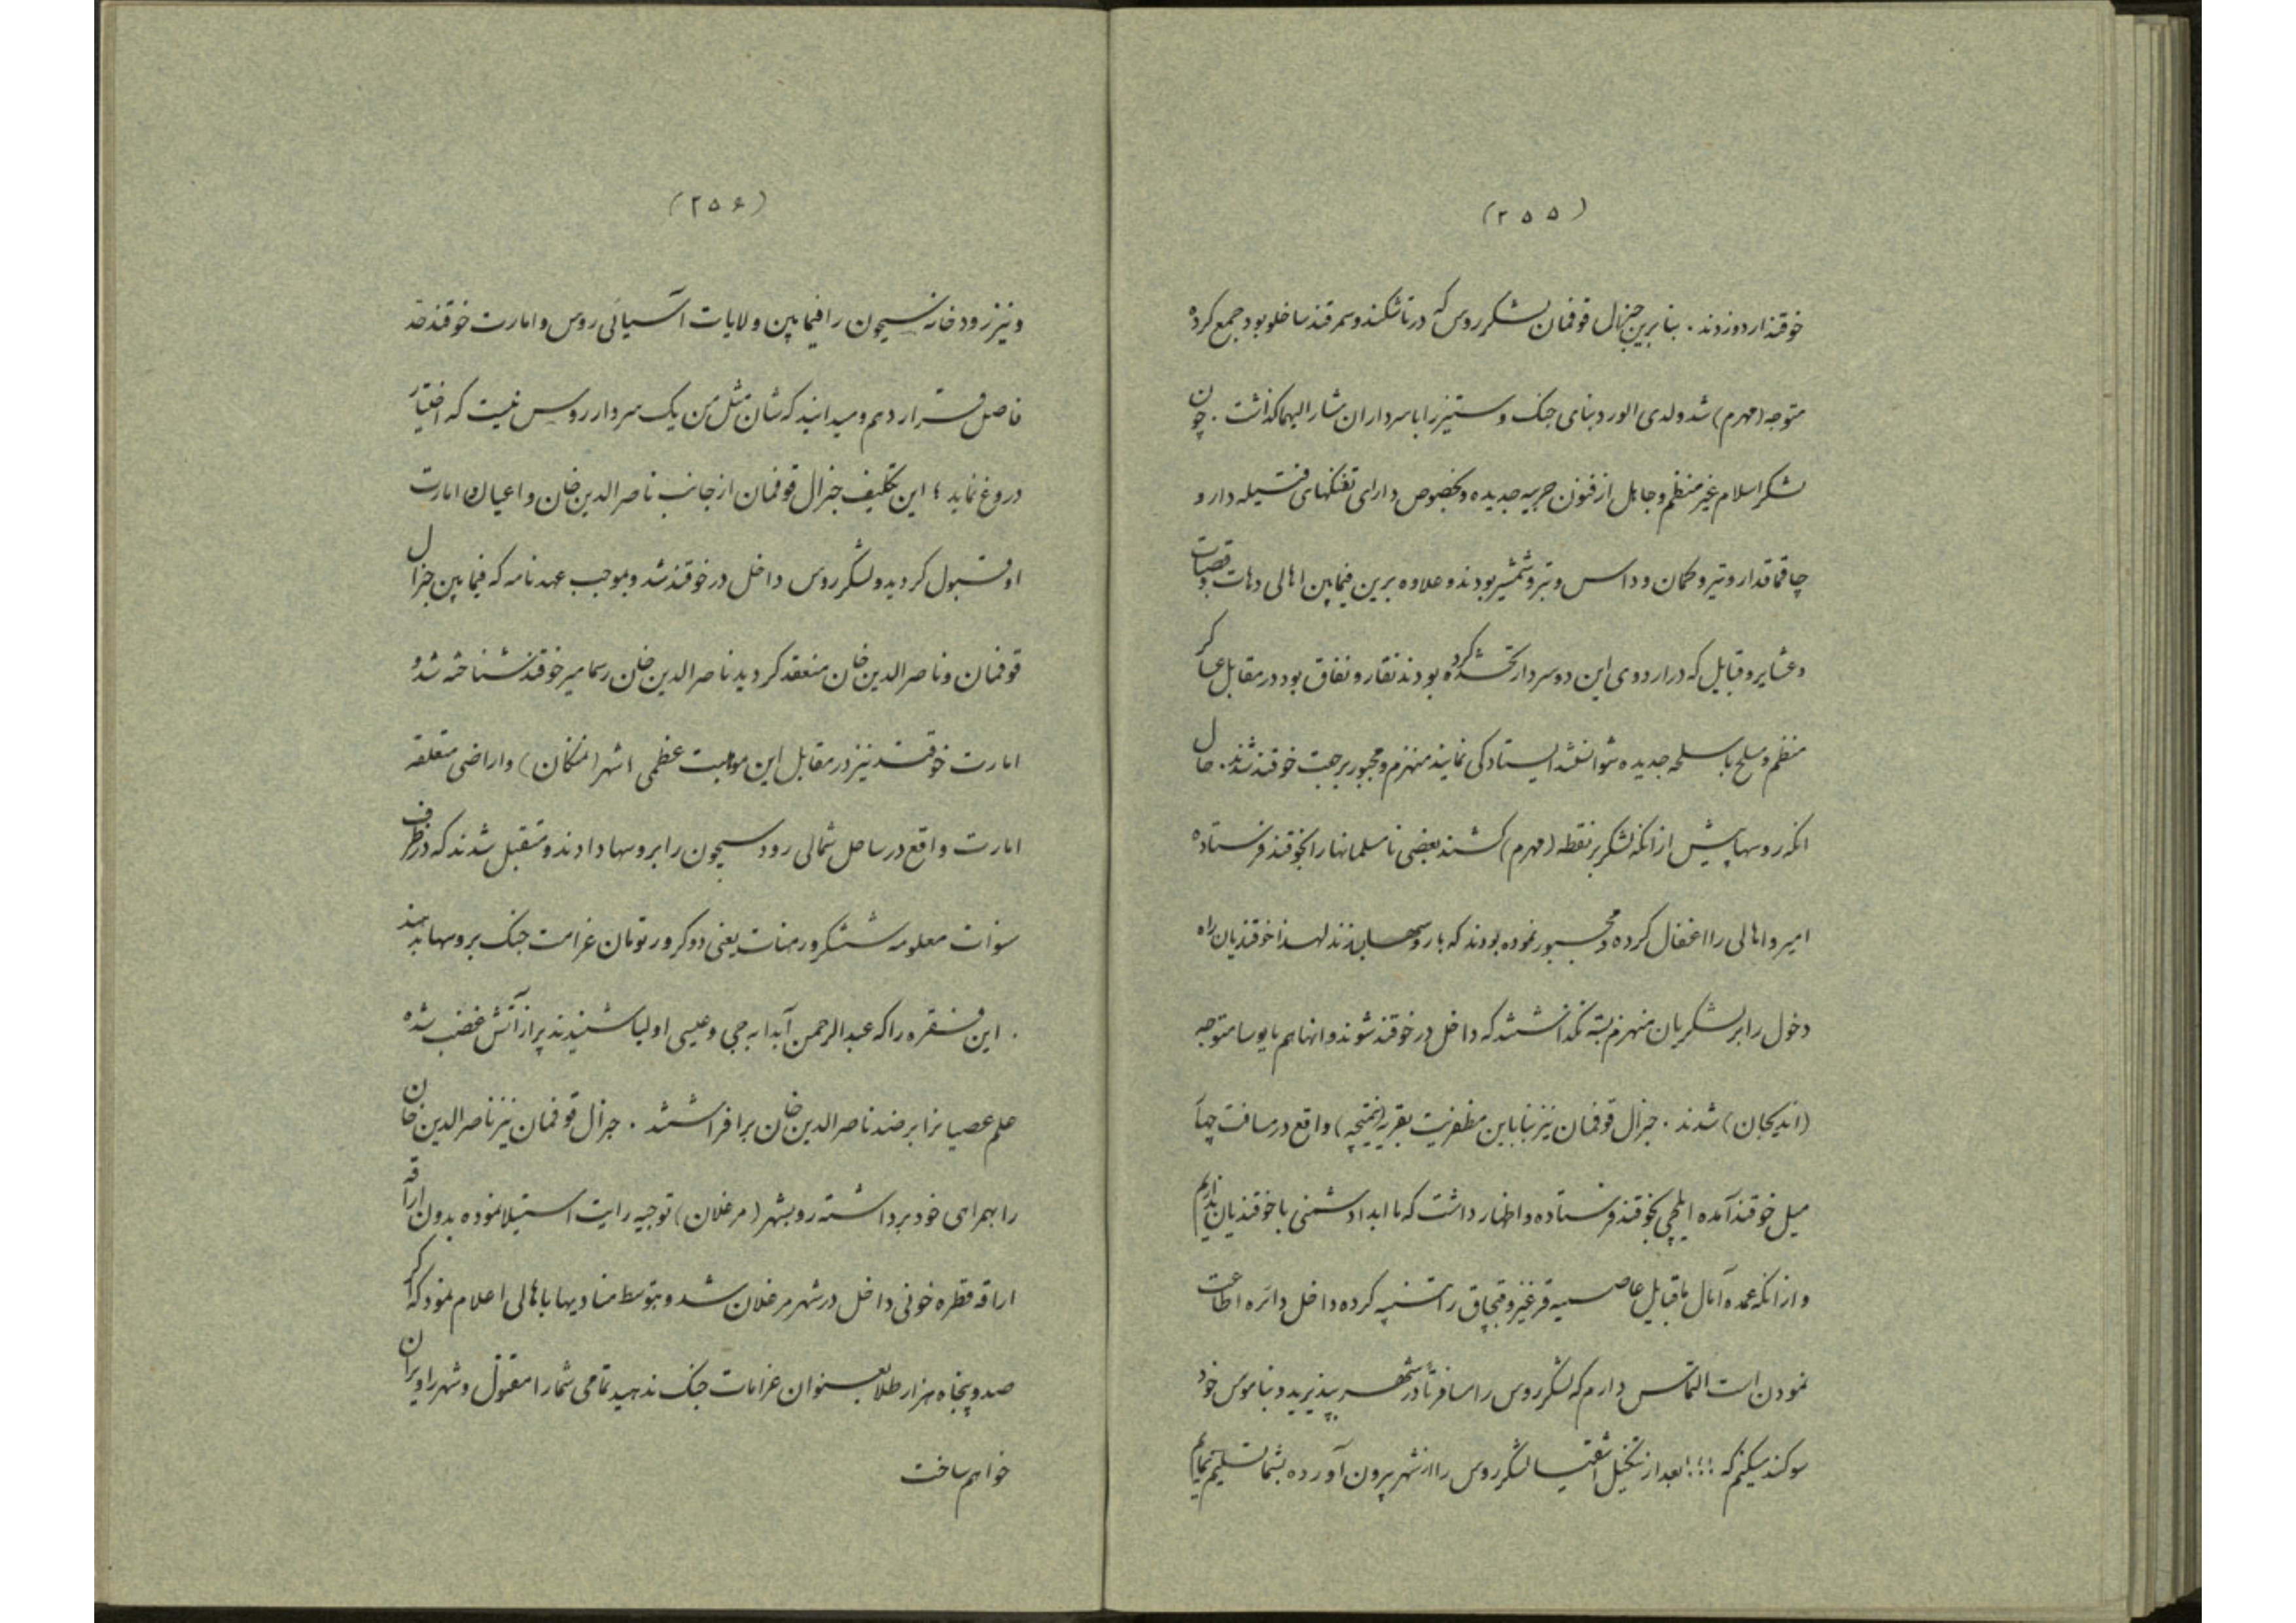 (۲۵۵)
خوقند اردو زدند . بنابرین جنرال قوفمان لشکر روس که در تاشکند و سمرقند ساخلو بود جمع کرده
متوجه (مهرم) شد ولدی الورود بنای جنک و ستیز را با سرداران مشار الیهما کذاشت . چون
لشکر اسلام غیر منظم و جاهل از فنون حربیه جدیده و بخصوص دارای تفنکهای فتیله دار و
چاقماقدار و تیر و کمان و داس و تبر و شمشیر بودند و علاوه برین فیمابین اهالی دهات و قصبات
و عشایر و قبایل که در اردوی این دو سردار تحشد کرده بودند نقار و نفاق بود در مقابل عساکر
منظم و مسلح باسلحه جدیده نتوانستند ایستادکی نمایند منهزم و مجبور برجعت خوقند شدند . حال
انکه روسها پیش از انکه لشکر بر نقطه (مهرم) کشند بعضی نامسلمانها را بخوقند فرستاده
امیر و اهالی را اغفال کرده و مجبور نموده بودند که با روسها بسازند لهذا خوقندیان راه
دخول را بر لشکریان منهزم بسته نکذاشتند که داخل در خوقند شوند و انها هم مایوسا متوجه
(اندیجان) شدند . جنرال قوفمان نیز بنا باین مظفریت بقریه (نیمنچه) واقع در مسافت چهار
میل خوقند آمده ایلچی بخوقند فرستاده و اظهار داشت که ما ابدا دشمنی با خوقندیان نداریم
و از انکه عمده آمال ما قبایل عاصیه قرغیز و قبچاق را تنبیه کرده داخل دائره اطاعت
نمودن است التماس دارم که لشکر روس را مسافرتا در شهر بپذیرید و بناموس خود
سوکند میکنم که ؛؛؛ بعد از تنکیل اشقیا لشکر روس را از شهر بیرون آورده بشما تسلیم نمایم
(۲۵۶)
و نیز رودخانه سیحون را فیمابین ولایات آسیائی روس و امارت خوقند حد
فاصل قرار دهم و میدانید که شان مثل من یک سردار روس نیست که اختیار
دروغ نماید ؛ این تکلیف جنرال قوفمان از جانب ناصر الدین خان و اعیان امارت
او قبول کردید و لشکر روس داخل در خوقند شد و بموجب عهد نامه که فیمابین جنرال
قوفمان و ناصر الدین خان منعقد کردید ناصر الدین خان رسما میر خوقند شناخته شد و
امارت خوقند نیز در مقابل این موهبت عظمی شهر (نمنکان) و اراضی متعلقه
امارت واقع در ساحل شمالی رود سیحون را بروسها دادند و متقبل شدند که در ظرف
سنوات معلومه شش کرور منات یعنی دو کرور تومان غرامت جنک بروسها بدهند
. این فقره را که عبد الرحمن آبدابه جی و عیسی اولیا شنیدند پر از آتش غضب شده
علم عصیانرا بر ضد ناصر الدین خان برافراشتند . جنرال قوفمان نیز ناصر الدین خان
را بهمراهی خود برداشته رو بشهر (مرغلان) توجیه رایت استیلا نموده بدون اراقه
اراقه قطره خونی داخل در شهر مرغلان شد و بتوسط منادیها باهالی اعلام نمود که اکر
صد و پنجاه هزار طلا بعنوان غرامات جنک ندهید تمامی شما را مقتول و شهر را ویران
خواهم ساخت